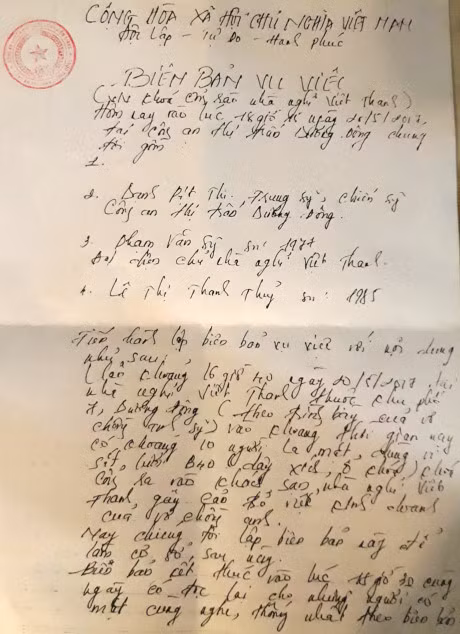 CỘNG HÒA XÃ HỘI CHỦ NGHĨA VIỆT NAM
Độc lập - Tự Do - Hạnh phúc
BIÊN BẢN VỤ VIỆC
(V/v khoá cổng sân nhà nghỉ Việt Thanh)
Hôm nay vào lúc, 18 giờ ngày 20/5/2017,
tại Công an thị trấn Dương Đông chúng
tôi gồm:
1.
2. Danh Thi, Trung sỹ, chiến sỹ
Công an thị trấn Dương Đông.
3. Phạm Văn Sỹ sn: 1974
Đại diện chủ nhà nghỉ Việt Thanh.
4. Lê Thị Thanh Thuỷ sn: 1985
Tiến hành lập biên bản vụ việc với nội dung
như sau:
(Vào khoảng 16 giờ 40 ngày 20/5/2017, tại
nhà nghỉ Việt Thanh thuộc khu phố
7, Dương Đông (theo trình bày của vợ
chồng anh sỹ) vào khoảng thời gian này
có khoảng 10 người lạ mặt, dùng
B40, dây xích, ổ khoá) khoá
cổng ra vào sau nhà nghỉ Việt
Thanh gây cản trở việc kinh doanh
của vợ chồng anh.
Nay chúng tôi lập biên bản này để
làm cơ sở sau này.
Biên bản kết thúc vào lúc giờ 30 cùng
ngày có đọc lại cho những người có
mặt cùng nghe, thống nhất theo biên bản